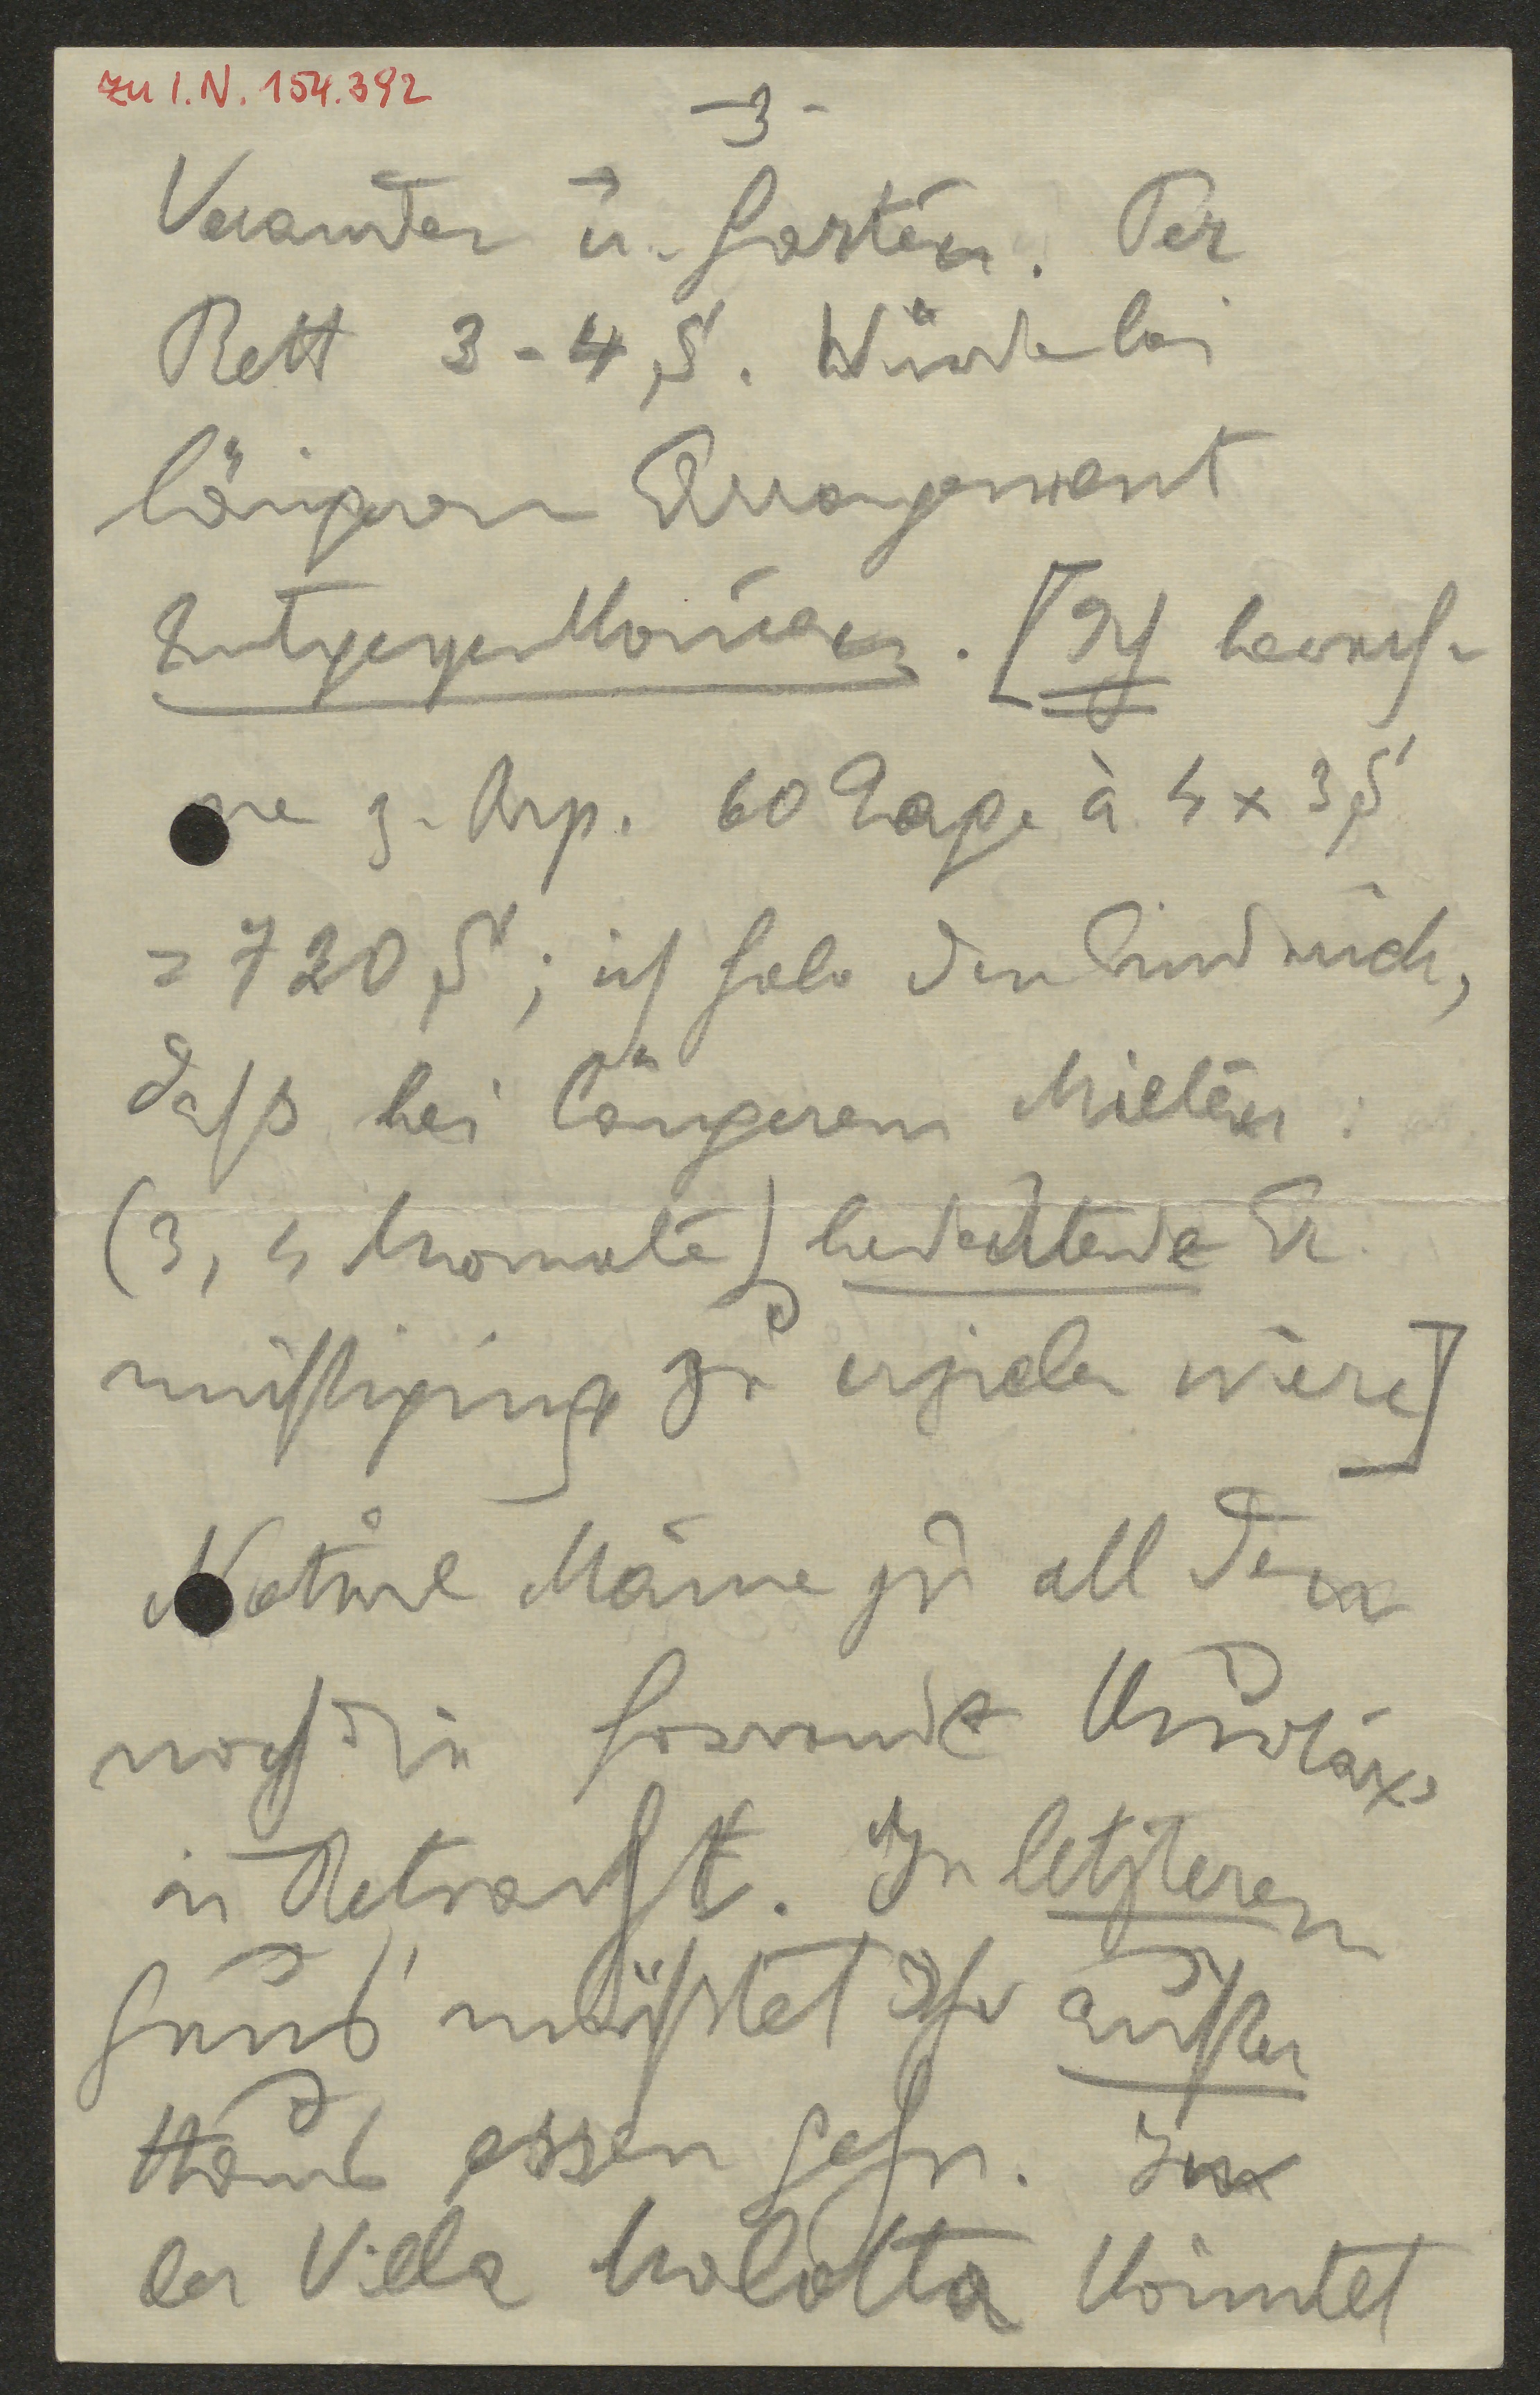 zu I.N. 154.392
-3-
Veranden u. Garten. Per
Bett 3-4 S. Würde bei
längerem Arrangement
Entgegenkommen. [Ich berech-
ne z. Bsp. 60 Tage à 4 x 3 S
= 720 S; ich habe den Eindruck,
daß bei längerem Mieten
(3, 4 Monate) bedeutende Er
mäßigung zu erzielen wäre]
Natürl käme zu all dem
noch die
in Betracht. In letzterem
Haus müßtet Ihr außer
Haus essen gehn. In
der Villa könntet